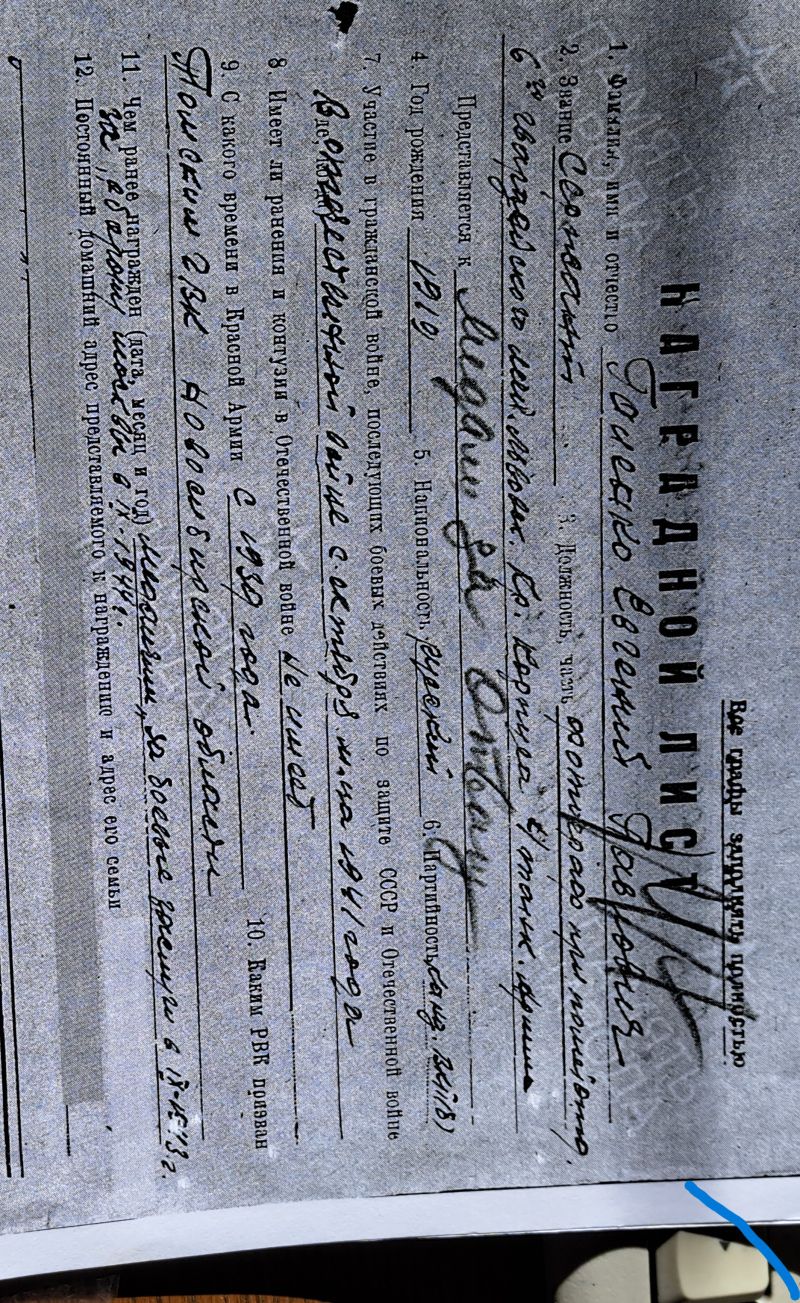 Все графы заполнять полностью
НАГРАДНОЙ ЛИСТ
1. Фамилия, имя и отчество Евгений Павлович
2. Звание Сержант 3. Должность, часть
6го гвардейского Кр. корпуса 4 танк. армии
Представляется к Медали За Отвагу
4. Год рождения 1919 5. Национальность русский 6. Партийность канд. ВКП(б)
7. Участие в гражданской войне, последующих боевых действиях по защите СССР и Отечественной войне
В отечественной войне с октября м-ца 1941 года
8. Имеет ли ранения и контузии в Отечественной войне не имеет
9. С какого времени в Красной Армии с 1939 года. 10. Каким РВК призван
Томским ГВК Новосибирской области
11. Чем ранее награжден (дата, месяц и год) медалями „за боевые заслуги в IX-1943 г.
за оборону Москвы в IX-1944 г.
12. Постоянный домашний адрес представляемого к награждению и адрес его семьи